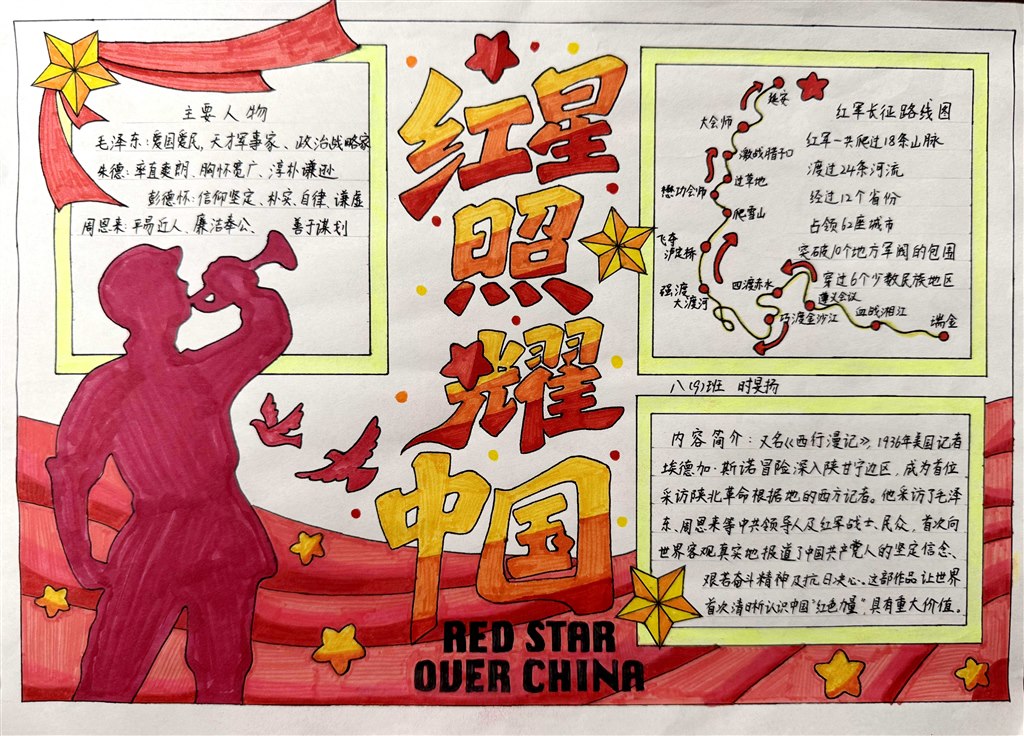 主要人物
毛泽东：爱国爱民，天才军事家、政治战略家
朱德：率直爽朗、胸怀宽广、淳朴谦逊
彭德怀：信仰坚定、朴实、自律、谦虚
周恩来：平易近人、廉洁奉公、善于谋划
红星
照
耀
中国
RED STAR
OVER CHINA
红军长征路线图
红军一共爬过18条山脉
渡过24条河流
经过12个省份
占领62座城市
突破10个地方军阀的包围
穿过6个少数民族地区
延安
大会师
激战腊子口
过草地
懋功会师
爬雪山
飞夺
泸定桥
强渡
大渡河
四渡赤水
遵义会议
巧渡金沙江
血战湘江
瑞金
八(9)班 时昊扬
内容简介：又名《西行漫记》，1936年美国记者
埃德加·斯诺冒险深入陕甘宁边区，成为首位
采访陕北革命根据地的西方记者。他采访了毛泽
东、周恩来等中共领导人及红军战士、民众，首次向
世界客观真实地报道了中国共产党人的坚定信念、
艰苦奋斗精神及抗日决心。这部作品让世界
首次清晰认识中国"红色力量"，具有重大价值。